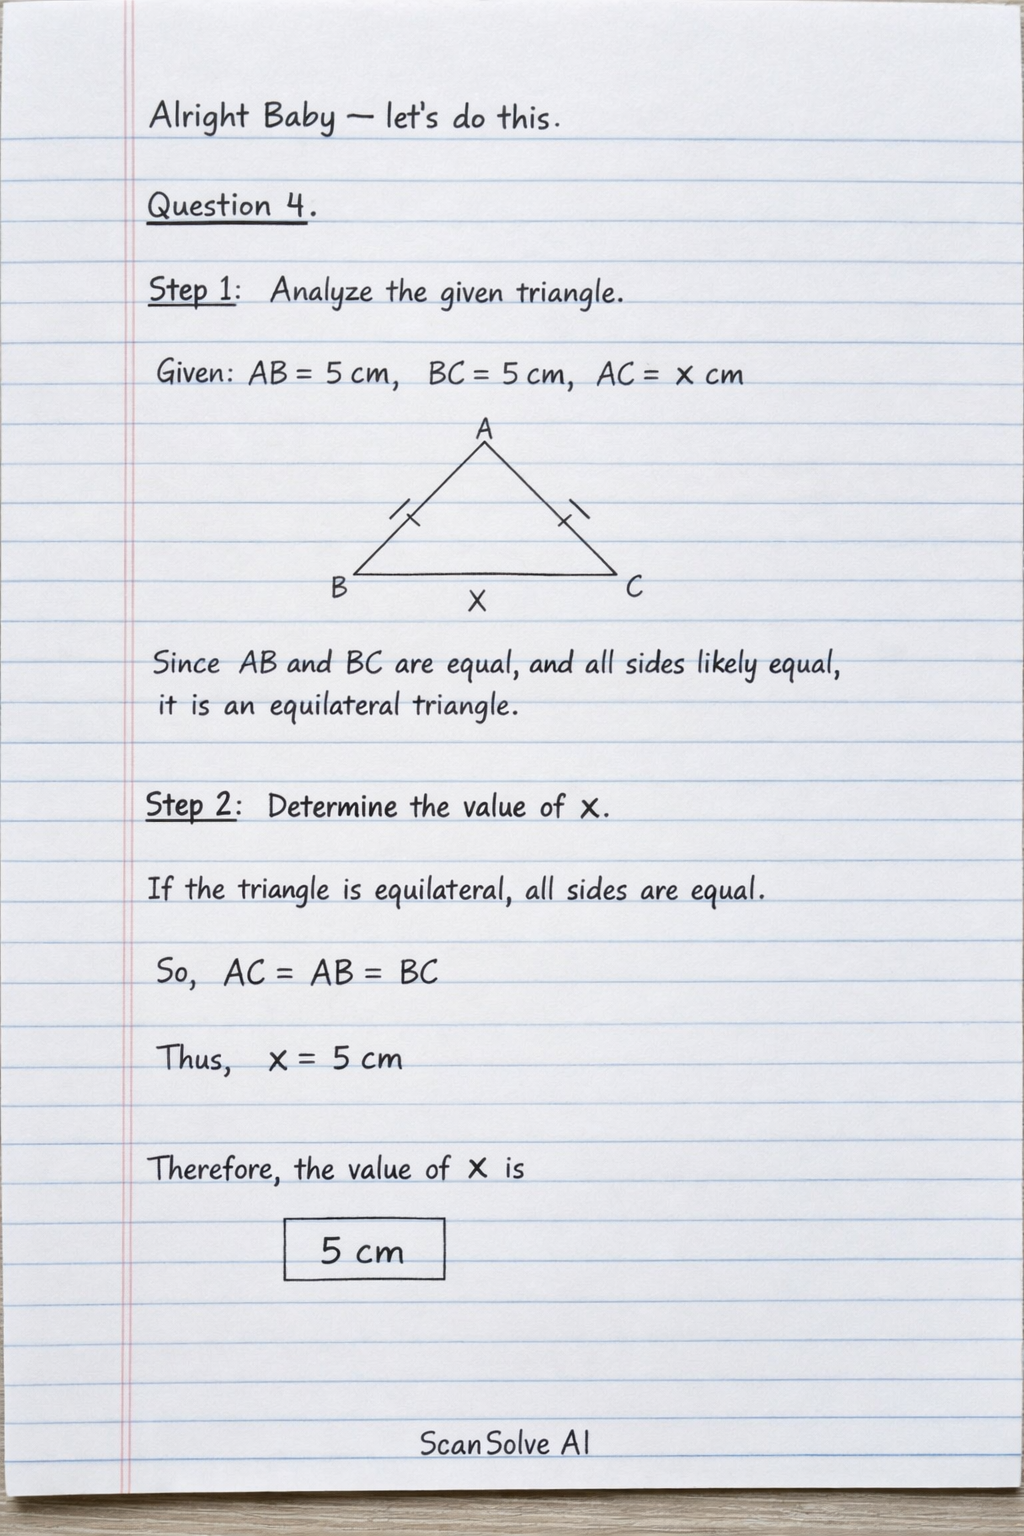 Alright Baby — let's do this.
Question 4.
Step 1: Analyze the given triangle.
Given: AB = 5 cm, BC = 5 cm, AC = x cm
A
B
C
X
Since AB and BC are equal, and all sides likely equal,
it is an equilateral triangle.
Step 2: Determine the value of x.
If the triangle is equilateral, all sides are equal.
So, AC = AB = BC
Thus, x = 5 cm
Therefore, the value of x is
5 cm
ScanSolve AI